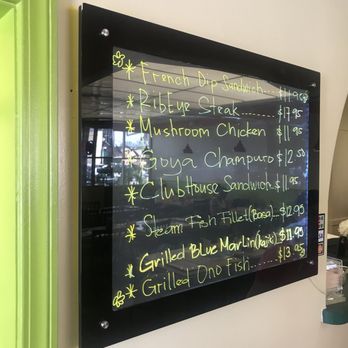 * French Dip Sandwich.... $11.95
* RibEye Steak.... $17.95
* Mushroom Chicken $11.95
* Goya Champuro $12.50
* ClubHouse Sandwich. $11.95
* Steam Fish Fillet(Basa)... $12.95
* Grilled Blue Marlin(kajiki) $11.95
* Grilled Ono Fish........ $13.95